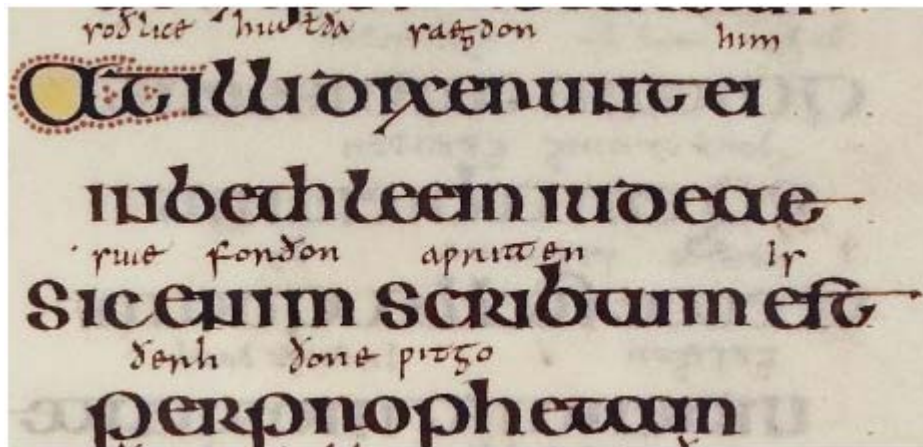 soðlice hia ł ða saegdon him
At illi dixerunt ei
in bethleem iudeae
sue forðon aƿritten is
sic enim scribtum est
ðerh ðone ƿitgo
per prophetam